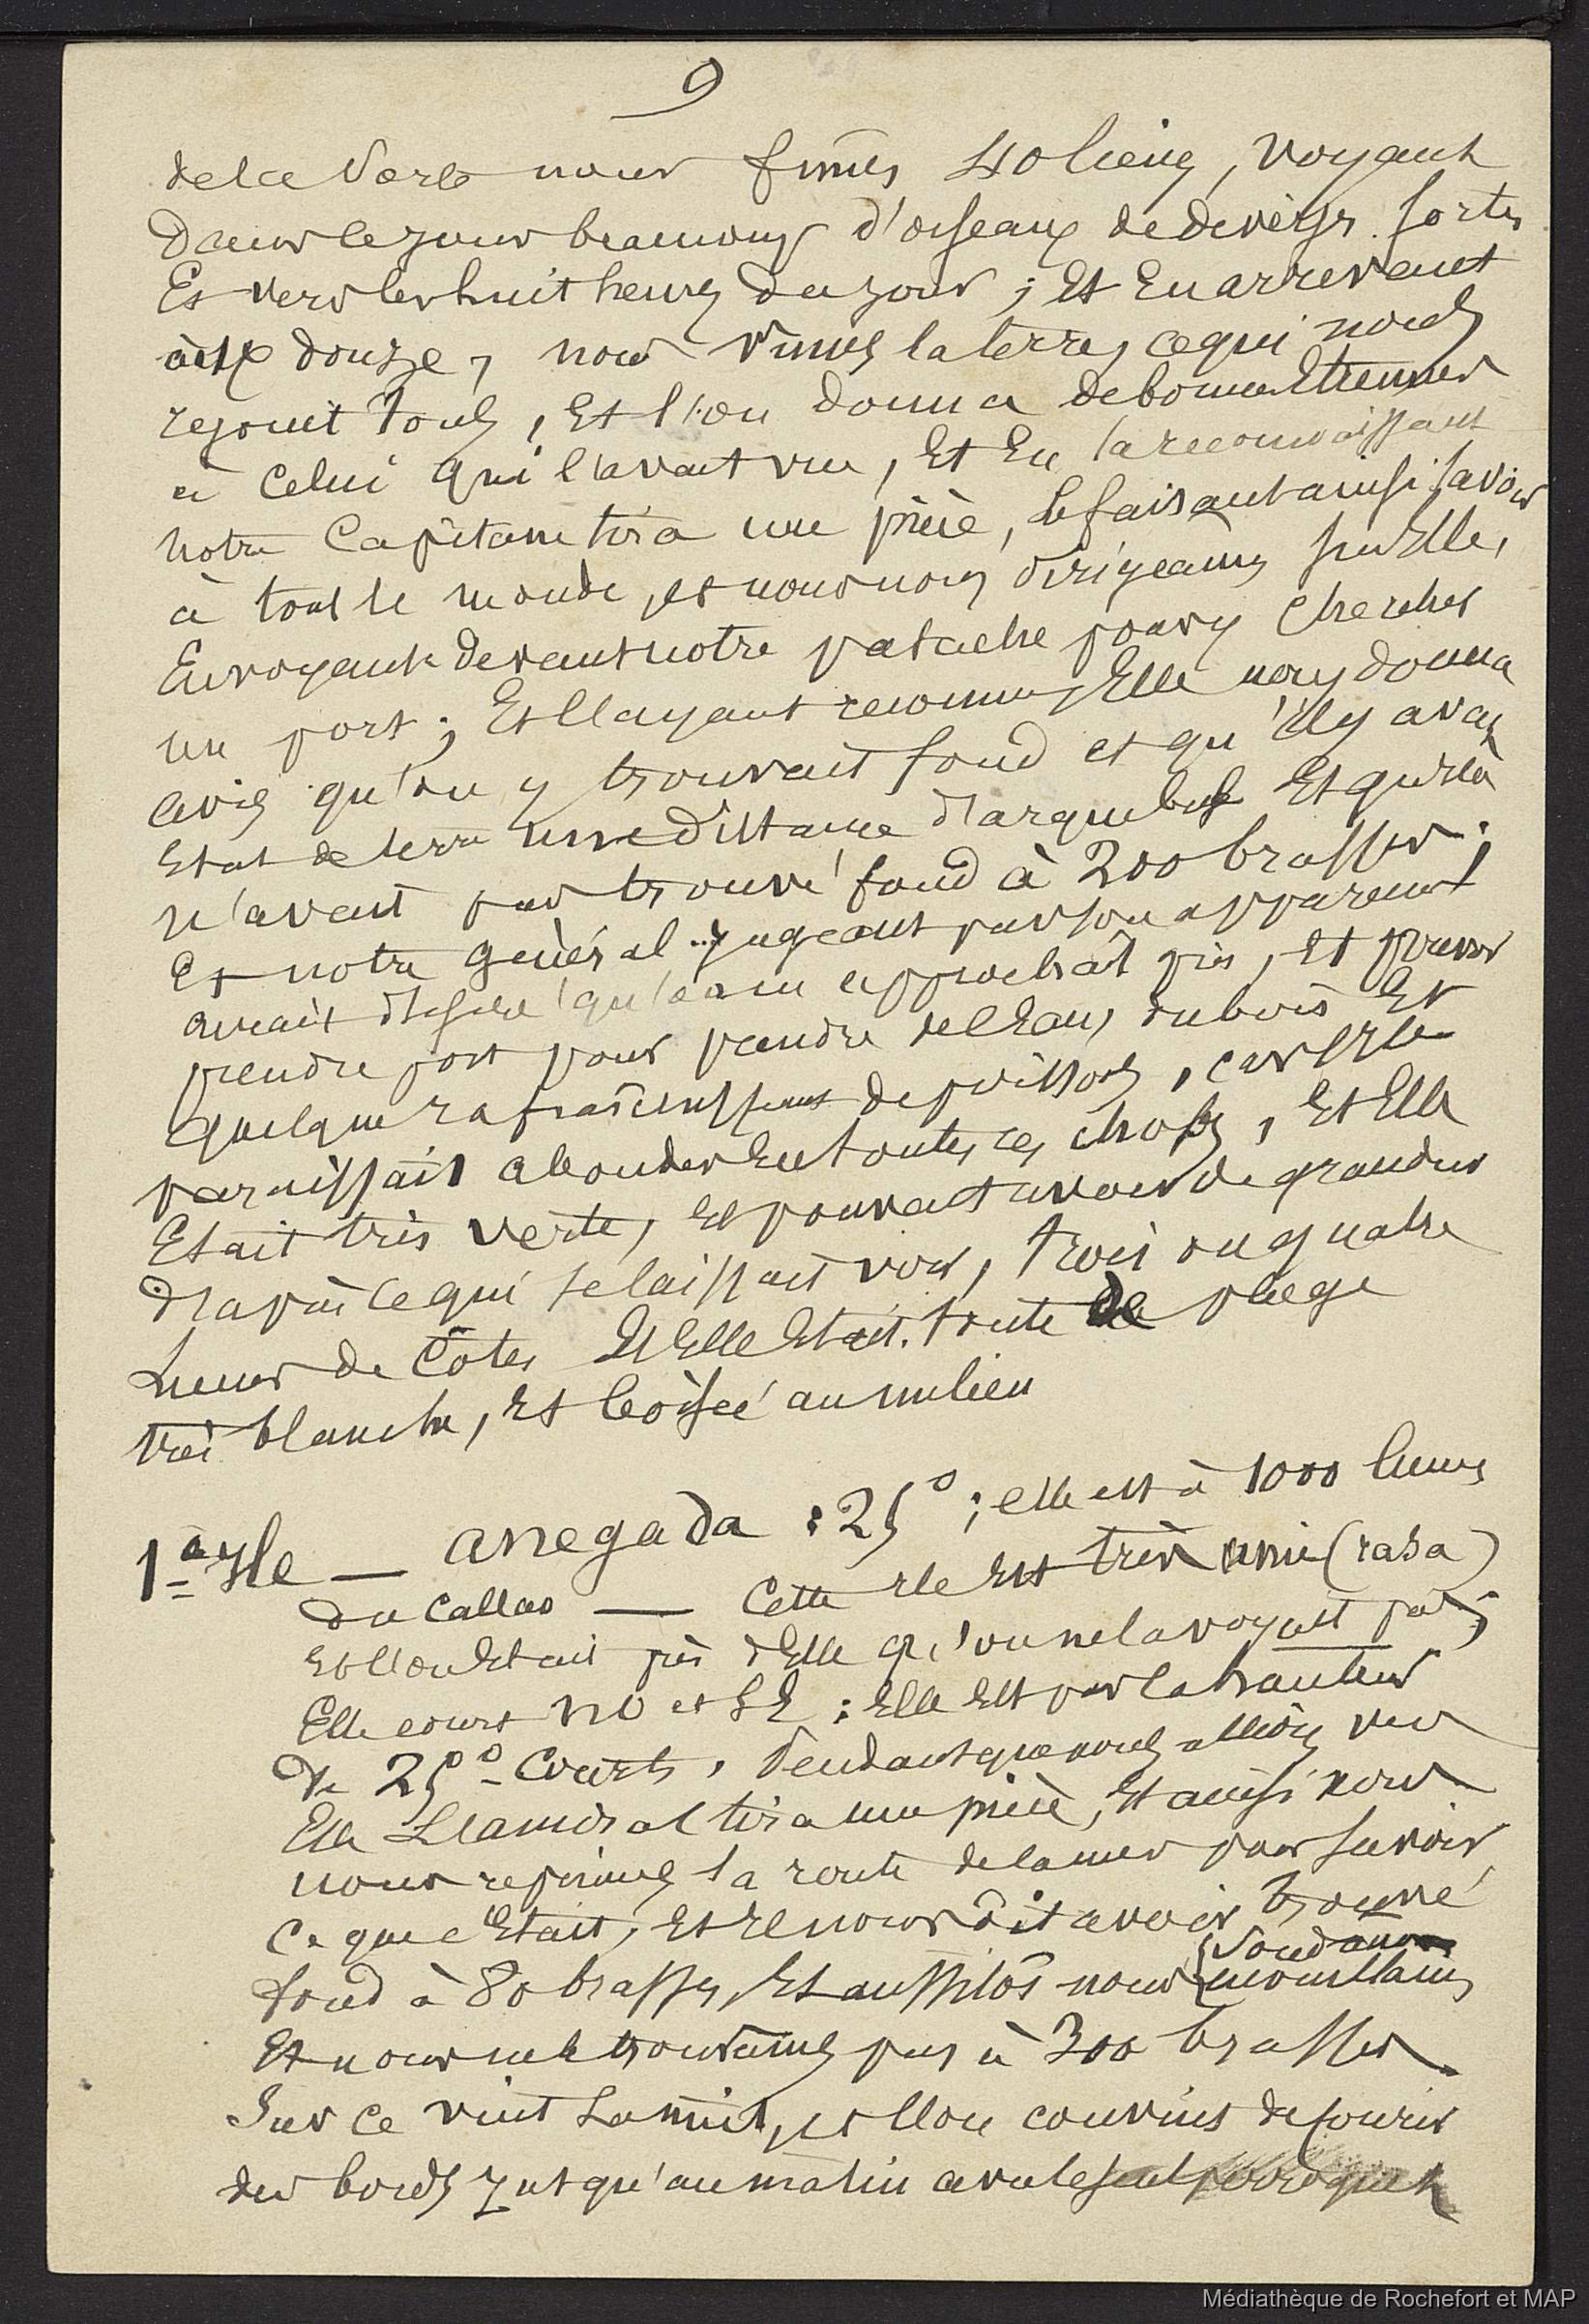 9
de la Sorte nous fimes 40 lieues, voyant
Dans le jour beaucoup d'oiseaux de divers sortes
Et vers les huit heures du jour ; Et En arrivant
aux douze, nous vimes la terre, ce qui nous
rejouit tous, Et l'on donna de bonnes Etrennes
à Celui qui l'avait vue, Et En la reconnaissant
notre Capitane tira une pièce, le faisant ainsi savoir
à tout le monde, et nous nous dirigeames sur Elle,
Envoyant devant notre patache pour y chercher
un port ; Et l'ayant reconnu, Elle nous donna
avis qu'on y trouvait fond et qu'il y avait
Etat de terre une distance d'arquebuse Et qu'elle
n'avait pas trouvé fond à 200 brasses ;
Et notre général jugeant par son apparence
aurait désiré qu'on en approchât près, Et pouvoir
prendre port pour prendre de l'Eau, du bois Et
quelque rafraichissement de poissons, car l'Ile
paraissait abonder En toutes ces choses, Et Elle
Etait très verte, Et pouvait avoir de grandeur
D'après ce qui se laissait voir, trois ou quatre
Lieues de Côtes Et Elle Etait toute de plage
très blanche, Et boisée au milieu
1ª Ile — anegada : 25° ; elle est à 1000 lieues
du Callao — Cette Ile Est très unie (rasa)
Et l'on Etait près d'Elle qu'on ne la voyait pas ;
Elle court NO et SE ; Elle Est par la hauteur
De 25° - Courts, Pendant que nous allions vers
Elle L'amiral tira une pièce, Et ainsi nous
nous reprimes la route de la mer pour savoir
Ce que c'Etait, Et Il nous dit avoir trouvé
fond à 80 brasses, Et aussitôt nous {mouillames
Sondames
Et nous ne le trouvames pas à 300 brasses.
Sur ce vint La nuit, et l'on convint de courir
des bords jusqu'au matin avec le seul perroquet